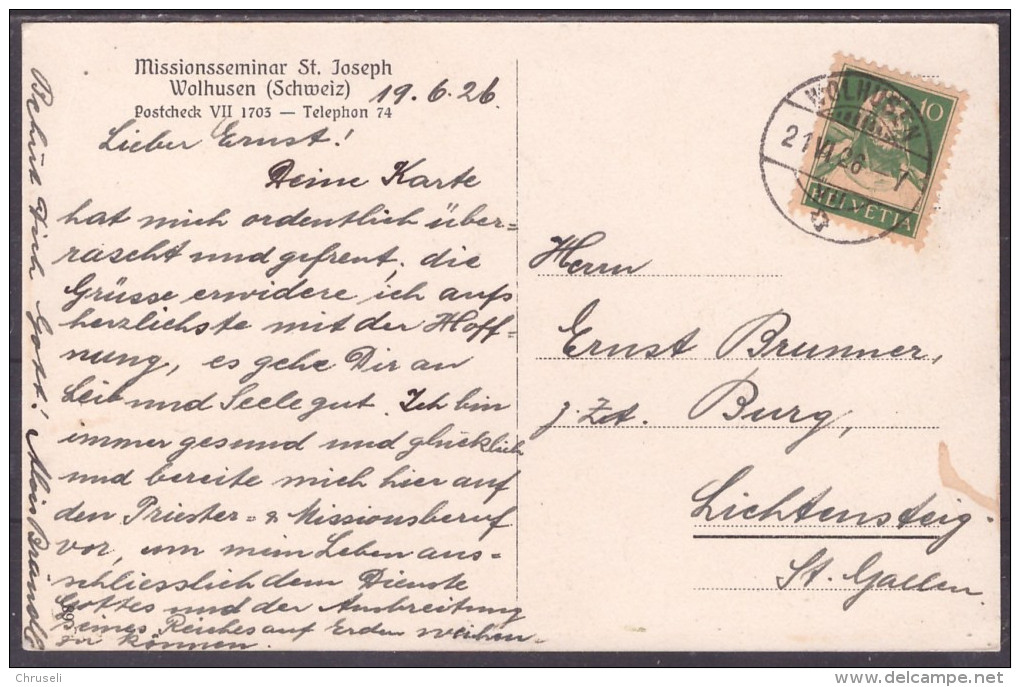 Missionsseminar St. Joseph
Wolhusen (Schweiz)
Postcheck VII 1703 — Telephon 74
19.6.26.
Lieber Ernst!
Deine Karte
hat mich ordentlich über=
rascht und gefreut, die
Grüsse erwidere ich aufs
herzlichste mit der Hoff=
nung, es gehe Dir an
Leib und Seele gut. Ich bin
immer gesund und glücklich
und bereite mich hier auf
den Priester= & Missionsberuf
vor, um mein Leben aus=
schliesslich dem Dienste
Gottes und der Ausbreitung
seines Reiches auf Erden weihen
zu können.
Behüt Dich Gott! Alois Brändle
WOLHUSEN
21.VI.26
10
HELVETIA
Herrn
Ernst Brunner,
z. Zt. Burg,
Lichtensteig.
St. Gallen.
Chruseli